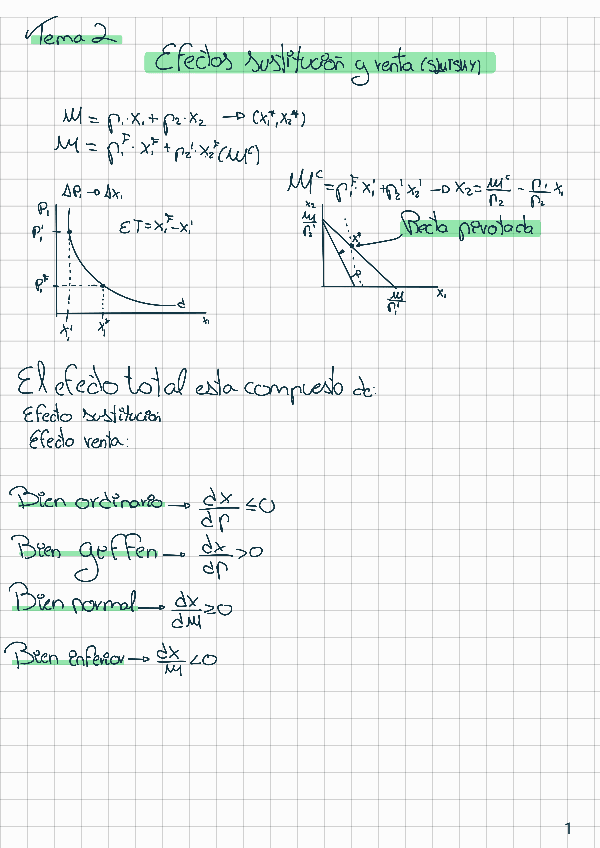 Tema 2
Efectos sustitución y renta (slutsky)
M = p₁·x₁ + p₂·x₂ → (x₁*, x₂*)
M = p₁ᶠ·x₁ᶠ + p₂'·x₂ᶠ (Mᶜ)
Mᶜ = p₁ᶠ·x₁' + p₂'x₂' → x₂ = Mᶜ/p₂ - p₁/p₂ x₁
ΔP₁ → Δx₁
P₁
P₁'
P₁ᶠ
ET = x₁ᶠ - x₁'
d
x₁' x₁ᶠ
x₁
x₂
M/p₂'
Recta pivotada
M/p₁'
x₁
El efecto total esta compuesto de:
Efecto sustitución
Efecto renta:
Bien ordinario → dx/dp ≤0
Bien geffen → dx/dp >0
Bien normal → dx/dM ≥0
Bien inferior → dx/M <0
1